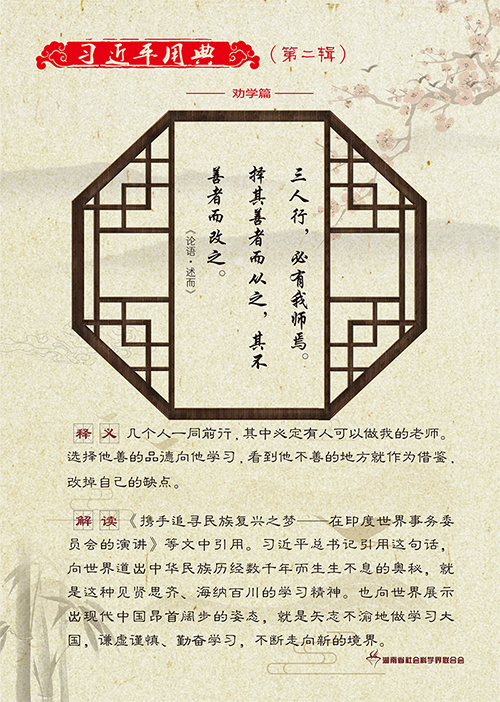 习近平用典
（第二辑）
劝学篇
三人行，必有我师焉。
择其善者而从之，其不
善者而改之。
《论语·述而》
释义 几个人一同前行，其中必定有人可以做我的老师。
选择他善的品德向他学习，看到他不善的地方就作为借鉴，
改掉自己的缺点。
解读《携手追寻民族复兴之梦——在印度世界事务委
员会的演讲》等文中引用。习近平总书记引用这句话，
向世界道出中华民族历经数千年而生生不息的奥秘，就
是这种见贤思齐、海纳百川的学习精神。也向世界展示
出现代中国昂首阔步的姿态，就是矢志不渝地做学习大
国，谦虚谨慎、勤奋学习，不断走向新的境界。
湖南省社会科学界联合会